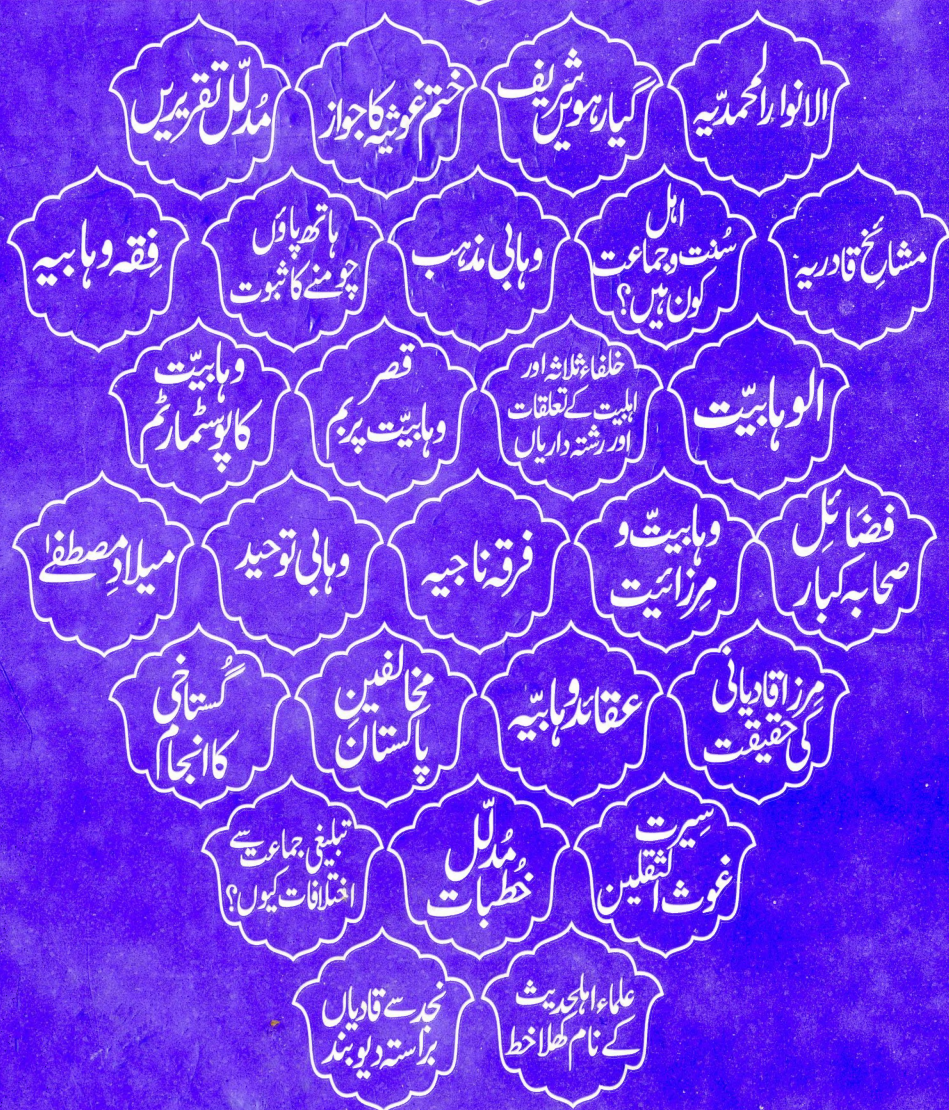 الانوار المحمدیّہ
گیارہویں شریف
ختم غوثیہ کا جواز
مُدلّل تقریریں
مشائخِ قادریہ
اہل
سُنت و جماعت
کون ہیں؟
وہابی مذہب
ہاتھ پاؤں
چومنے کا ثبوت
فِقہ وہابیہ
الوہابیّت
خلفاءِ ثلاثہ اور
اہلبیت کے تعلقات
اور رشتہ داریاں
قصر
وہابیّت پر بم
وہابیّت
کا پوسٹمارٹم
فضَائِل
صحابہ کبار
وہابیّت و
مِرزائیت
فرقہ ناجیہ
وہابی توحید
میلادِ مصطفےٰ
مِرزا قادیانی
کی حقیقت
عقائد وہابیّہ
مخالفینِ
پاکستان
گُستاخی
کا انجام
سِیرت
غوث الثقلین
مُدلّل
خُطبات
تبلیغی جماعت سے
اختلافات کیوں؟
علماء اہلحدیث
کے نام کھلا خط
نجد سے قادیاں
براستہ دیوبند